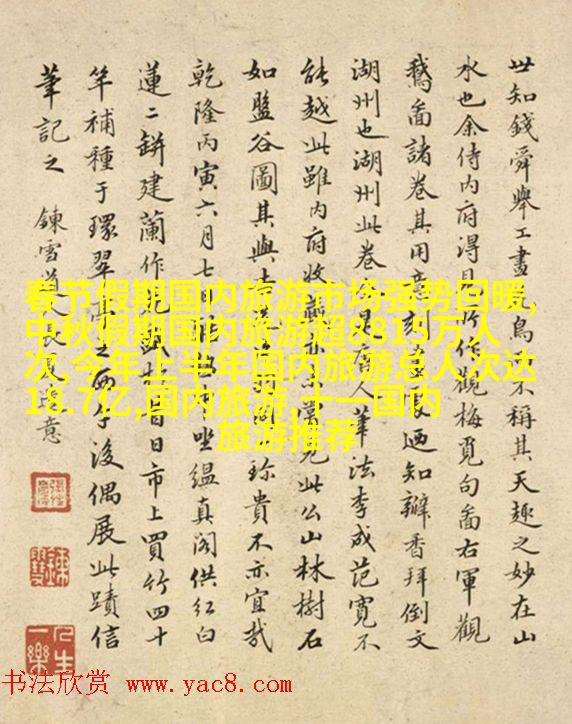 春节假期国内旅游市场强势回暖,
中秋假期国内旅游超8815万人
次,今年上半年国内旅游总人次达
18.7亿,国内旅游,十一国内
旅游推荐
世知錢舜舉工畫花鳥不稱其天趣之妙在山
水也余侍內府得見所作觀梅覓句啚右軍觀
鵝啚諸卷其用意刻迺知瓣香拜倒文
湖州也湖州此卷是唐人筆法李成范寬不
能越此雖內府收藏亦不常見此公山林樹石
如盤谷圖其與珍貴不亦宜哉
乾隆丙寅六月七日坐縕真閣供紅白
蓮二缾建蘭作花日市上買竹四十
竿補種于環翠後偶展此蹟信
筆記之 鍊雪道人長夏意
人生一樂
书法欣赏 www.yac8.com